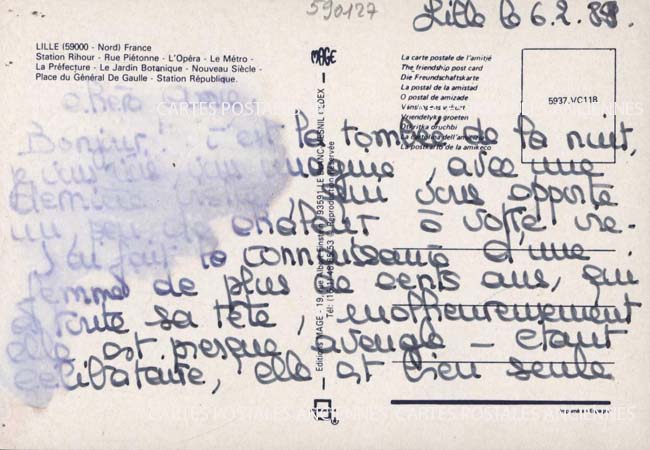 590127
Lille le 6.2.89.
LILLE (59000 - Nord) France
Station Rihour - Rue Piétonne - L'Opéra - Le Métro -
La Préfecture - Le Jardin Botanique - Nouveau Siècle -
Place du Général De Gaulle - Station République.
MAGE
La carte postale de l'amitié
The friendship post card
Die Freundschaftskarte
La postal de la amistad
O postal de amizade
Vriendelyke groeten
La cartolina dell'amicizia
La postkarto de la amikeco
5937.VC118
Editions MAGE - 19, rue Albert Einstein - 93591 LE BLANC MESNIL CEDEX -
Tél: Reproduction réservée
Bonjour c'est la tombée de la nuit,
avec une
qui vous apporte
un chaleur à votre vie.
J'ai fait la connaissance d'une
femme de plus de cents ans, qui
a toute sa tête, malheureusement
elle est presque aveugle - étant
célibataire, elle est bien seule
CARTES POSTALES ANCIENNES